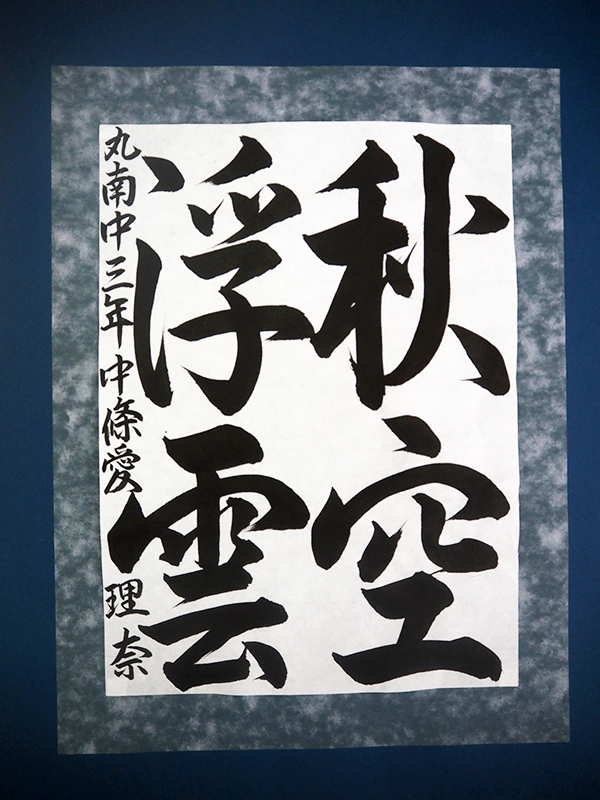 秋空
浮雲
丸南中三年中條愛理奈